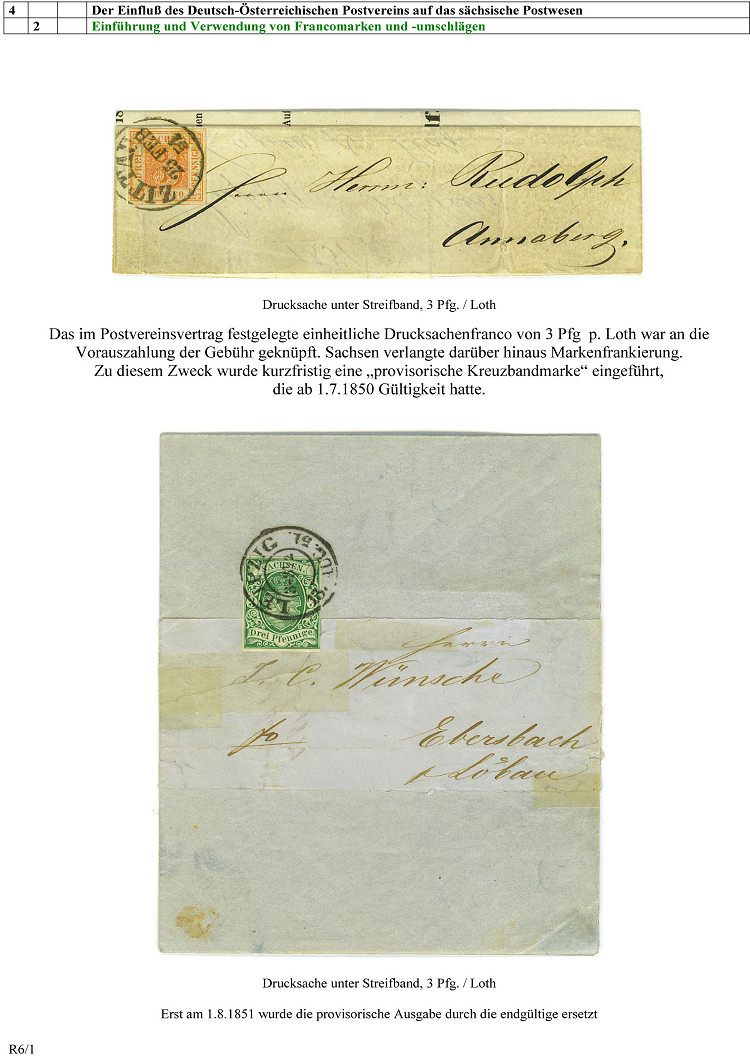 4 Der Einfluß des Deutsch-Österreichischen Postvereins auf das sächsische Postwesen
2 Einführung und Verwendung von Francomarken und -umschlägen
ZITTAU
25 FEB
51
Herrn Herrn: Rudolph
Annaberg.
Drucksache unter Streifband, 3 Pfg. / Loth
Das im Postvereinsvertrag festgelegte einheitliche Drucksachenfranco von 3 Pfg p. Loth war an die
Vorauszahlung der Gebühr geknüpft. Sachsen verlangte darüber hinaus Markenfrankierung.
Zu diesem Zweck wurde kurzfristig eine „provisorische Kreuzbandmarke“ eingeführt,
die ab 1.7.1850 Gültigkeit hatte.
LEIPZIG
SACHSEN.
Drei Pfennige.
Herrn
J. C. Wünsche
fo Ebersbach
Löbau
Drucksache unter Streifband, 3 Pfg. / Loth
Erst am 1.8.1851 wurde die provisorische Ausgabe durch die endgültige ersetzt
R6/1